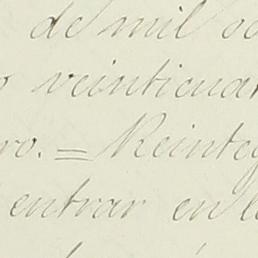 de mil oc
o veinticuat
ro. = Reinteg
entrar en l